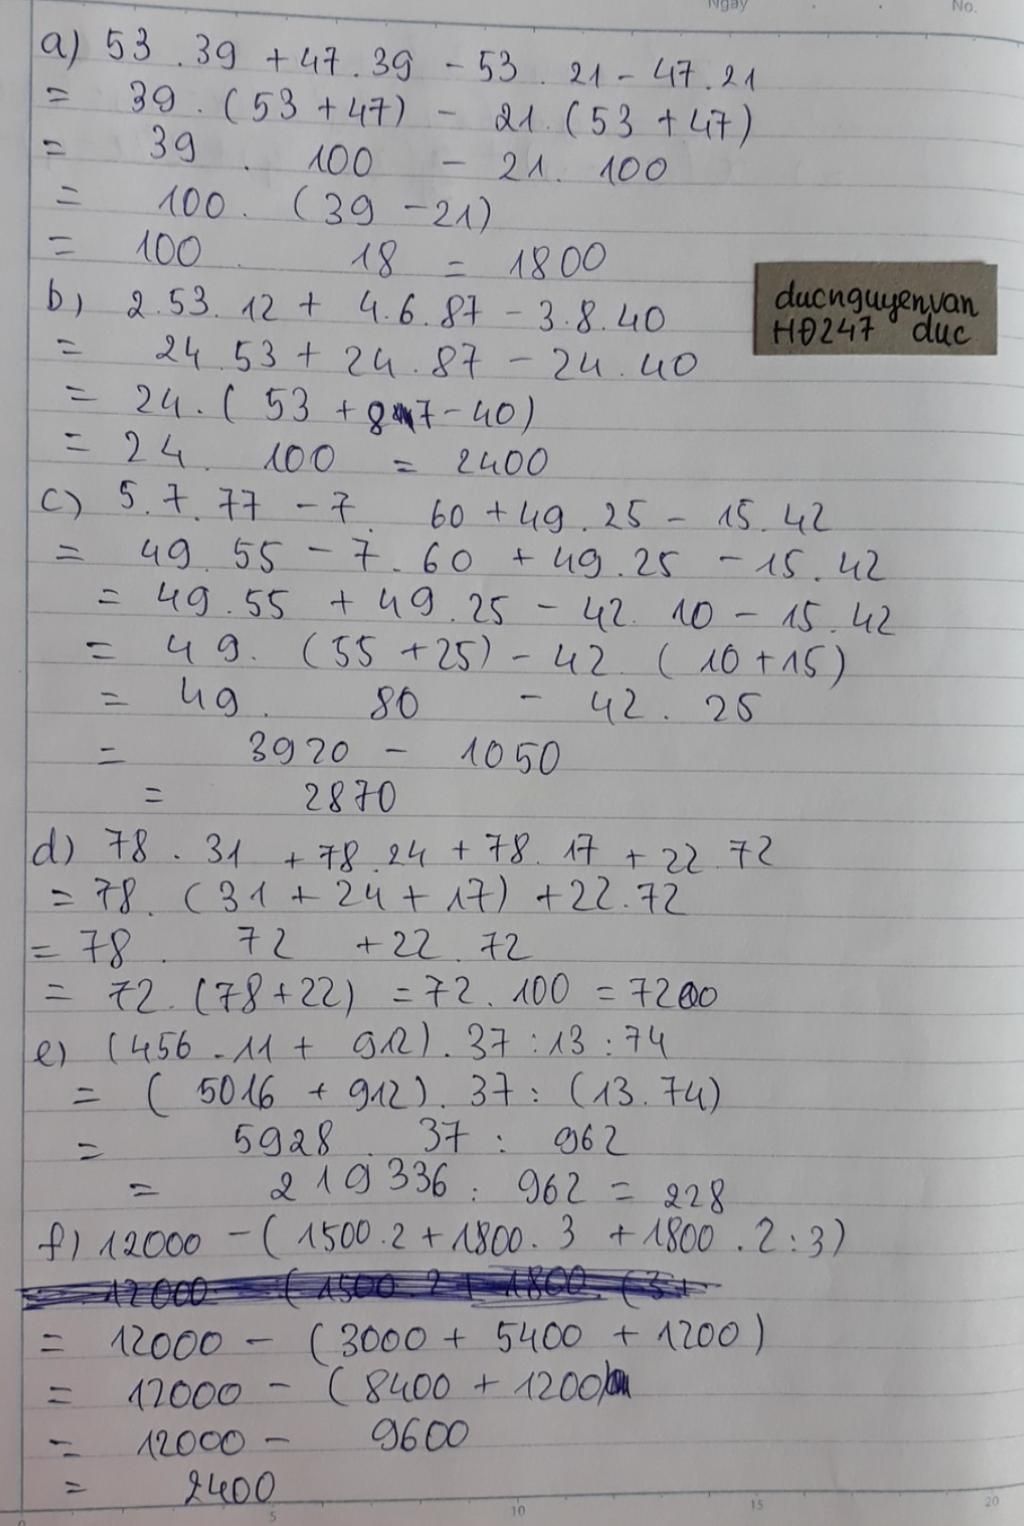 Ngày
No.
a) 53 . 39 + 47 . 39 - 53 . 21 - 47 . 21
= 39 . (53 + 47) - 21 . (53 + 47)
= 39 . 100 - 21 . 100
= 100 . (39 - 21)
= 100 . 18 = 1800
b) 2 . 53 . 12 + 4 . 6 . 87 - 3 . 8 . 40
= 24 . 53 + 24 . 87 - 24 . 40
= 24 . (53 + 87 - 40)
= 24 . 100 = 2400
ducnguyenvan
HĐ247 duc
c) 5 . 7 . 77 - 7 . 60 + 49 . 25 - 15 . 42
= 49 . 55 - 7 . 60 + 49 . 25 - 15 . 42
= 49 . 55 + 49 . 25 - 42 . 10 - 15 . 42
= 49 . (55 + 25) - 42 . (10 + 15)
= 49 . 80 - 42 . 25
= 3920 - 1050
= 2870
d) 78 . 31 + 78 . 24 + 78 . 17 + 22 . 72
= 78 . (31 + 24 + 17) + 22 . 72
= 78 . 72 + 22 . 72
= 72 . (78 + 22) = 72 . 100 = 7200
e) (456 . 11 + 912) . 37 : 13 : 74
= (5016 + 912) . 37 : (13 . 74)
= 5928 . 37 : 962
= 219336 : 962 = 228
f) 12000 - (1500 . 2 + 1800 . 3 + 1800 . 2 : 3)
12000 (1500 . 2 + 1800 . (3 +
= 12000 - (3000 + 5400 + 1200)
= 12000 - (8400 + 1200)
= 12000 - 9600
= 2400
0 5 10 15 20